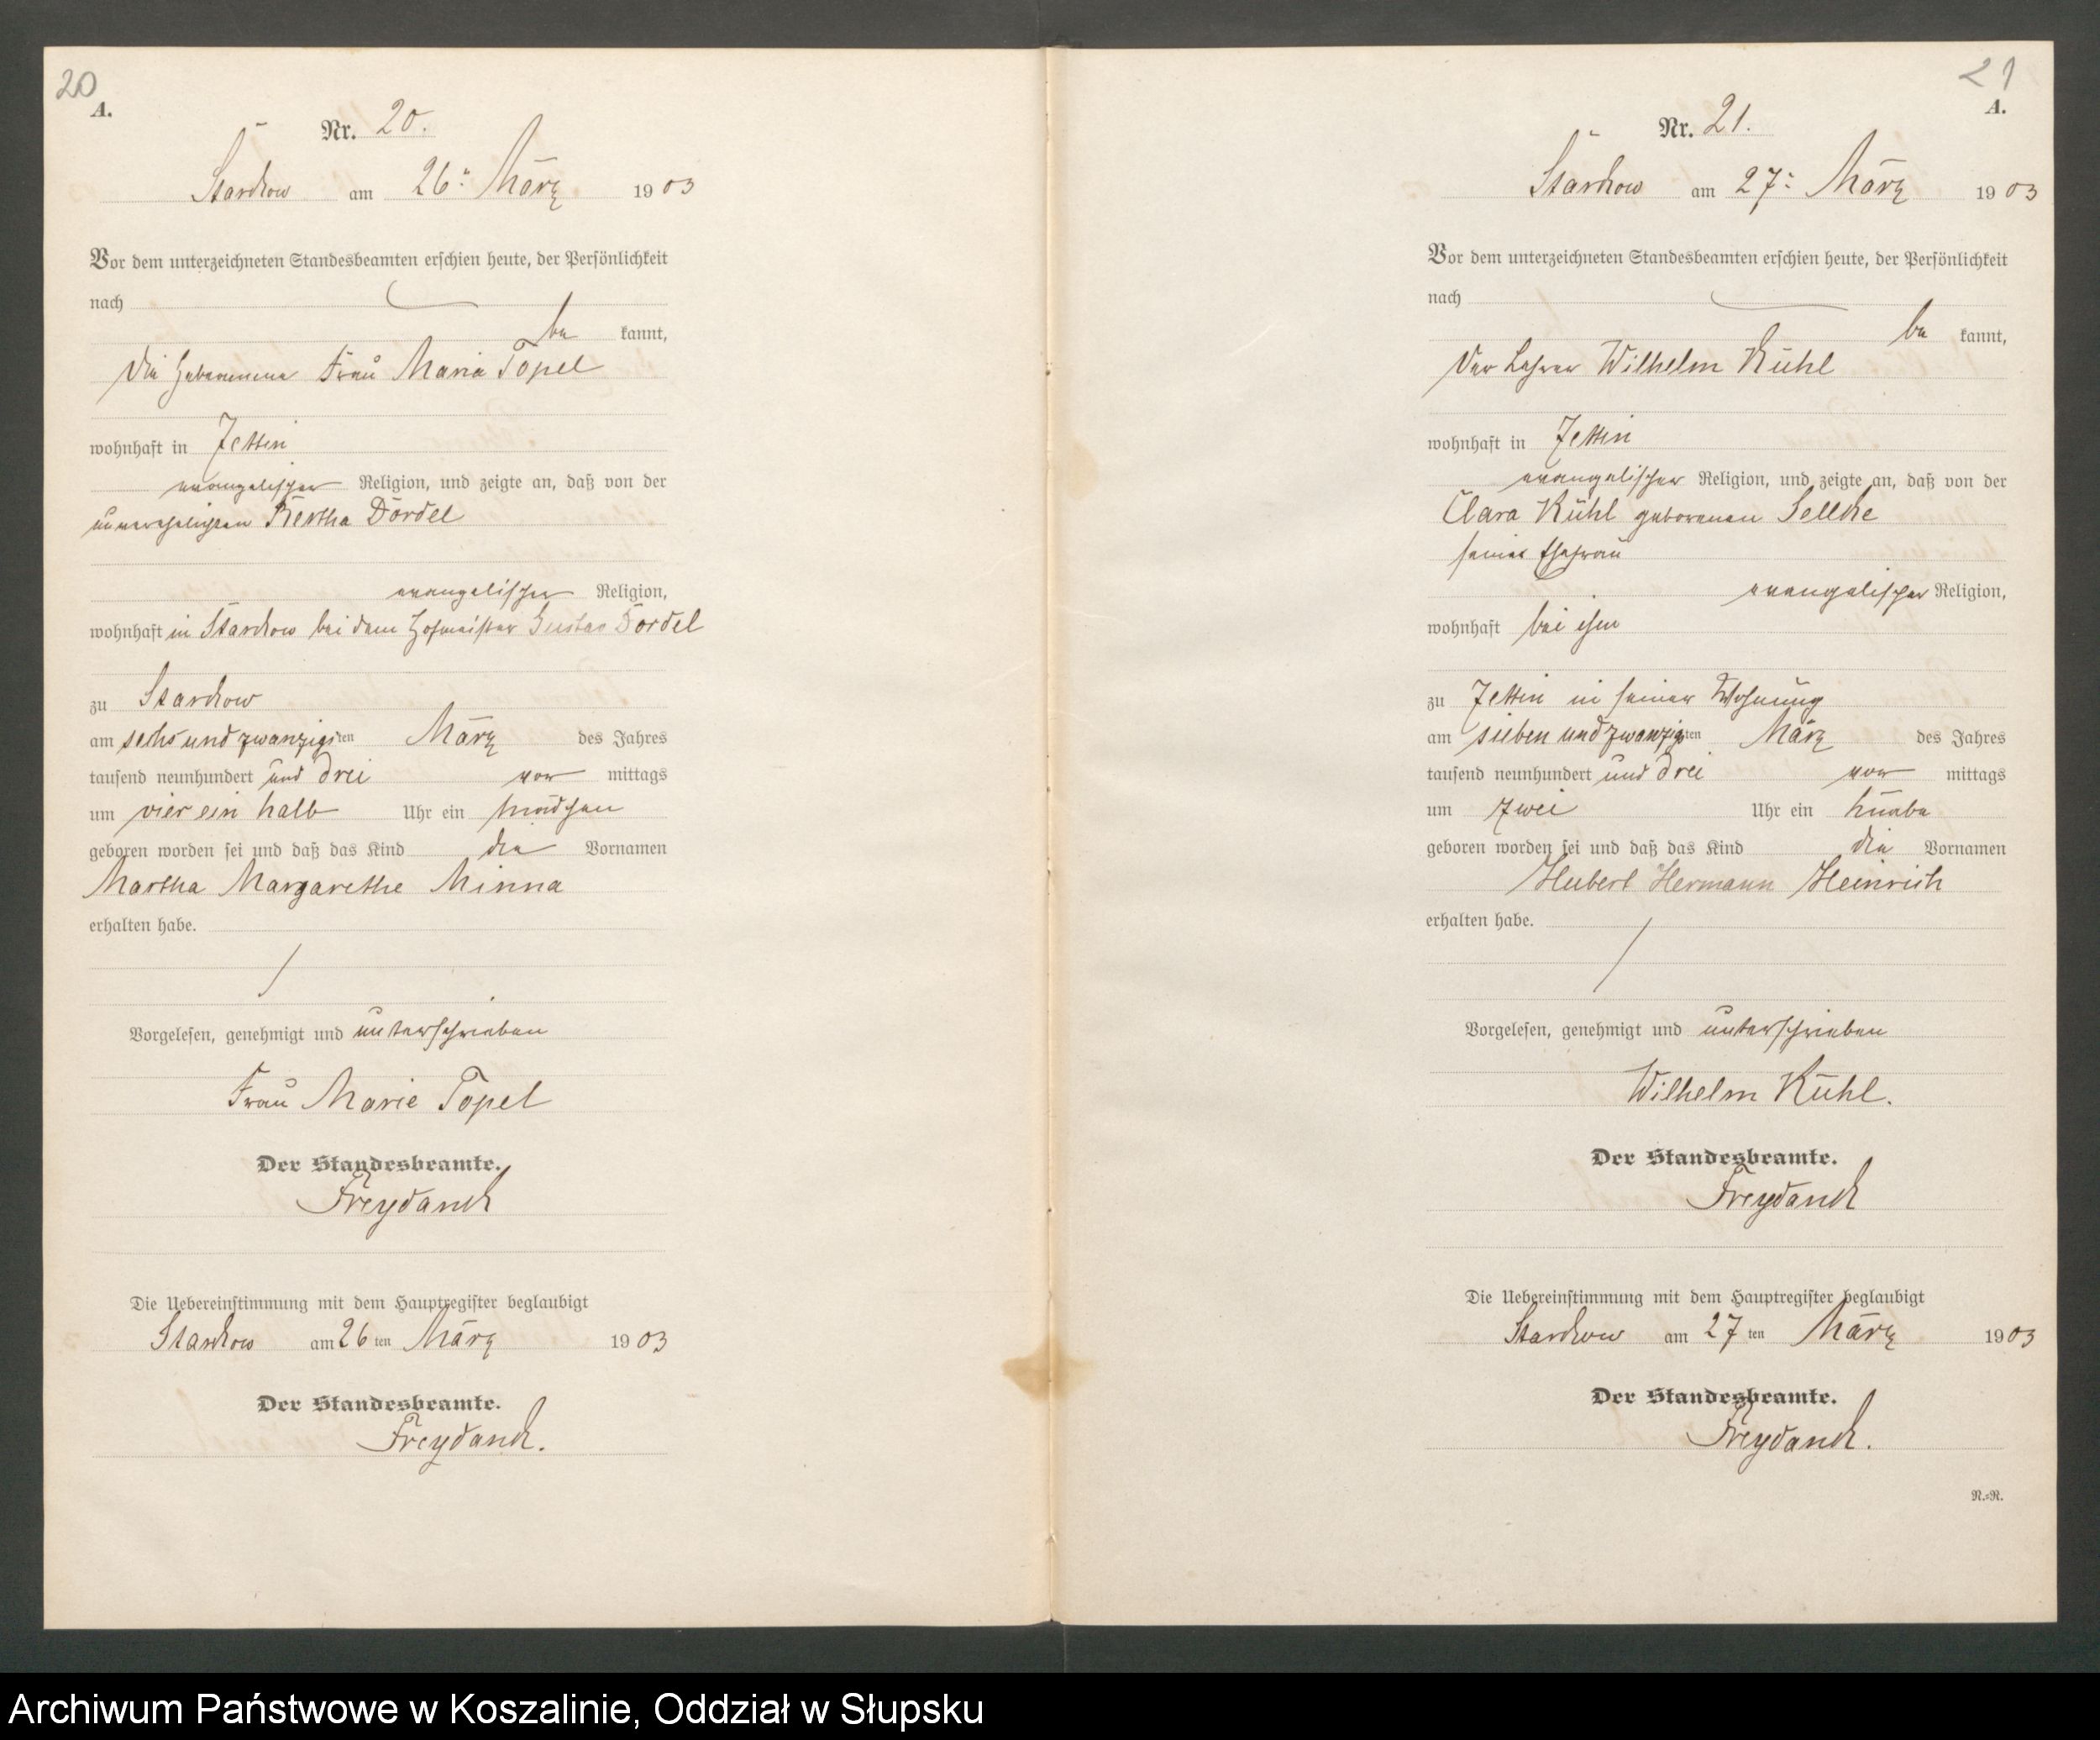 20
A.
Nr. 20.
Starckow am 26ᵗᵉⁿ März 1903
Vor dem unterzeichneten Standesbeamten erschien heute, der Persönlichkeit
nach
be kannt,
die Hebamme Frau Maria Topel
wohnhaft in Jettin
evangelischer Religion, und zeigte an, daß von der
unverehelichten Bertha Dördel
evangelischer Religion,
wohnhaft in Starckow bei dem Hofmeister Gustav Dördel
zu Starckow
am sechs und zwanzigsten März des Jahres
tausend neunhundert und drei vor mittags
um vier ein halb Uhr ein Mädchen
geboren worden sei und daß das Kind die Vornamen
Martha Margarethe Minna
erhalten habe.
Vorgelesen, genehmigt und unterschrieben
Frau Marie Topel
Der Standesbeamte.
Freydanck
Die Uebereinstimmung mit dem Hauptregister beglaubigt
Starckow am 26 ten März 1903
Der Standesbeamte.
Freydanck.
21
A.
Nr. 21.
Starckow am 27ᵗᵉⁿ März 1903
Vor dem unterzeichneten Standesbeamten erschien heute, der Persönlichkeit
nach
be kannt,
der Lehrer Wilhelm Kühl
wohnhaft in Jettin
evangelischer Religion, und zeigte an, daß von der
Clara Kühl geborenen Sellke
seiner Ehefrau
evangelischer Religion,
wohnhaft bei ihm
zu Jettin in seiner Wohnung
am sieben und zwanzigsten März des Jahres
tausend neunhundert und drei vor mittags
um zwei Uhr ein Knabe
geboren worden sei und daß das Kind die Vornamen
Hubert Hermann Heinrich
erhalten habe.
Vorgelesen, genehmigt und unterschrieben
Wilhelm Kühl.
Der Standesbeamte.
Freydanck
Die Uebereinstimmung mit dem Hauptregister beglaubigt
Starckow am 27 ten März 1903
Der Standesbeamte.
Freydanck.
N.=R.
Archiwum Państwowe w Koszalinie, Oddział w Słupsku